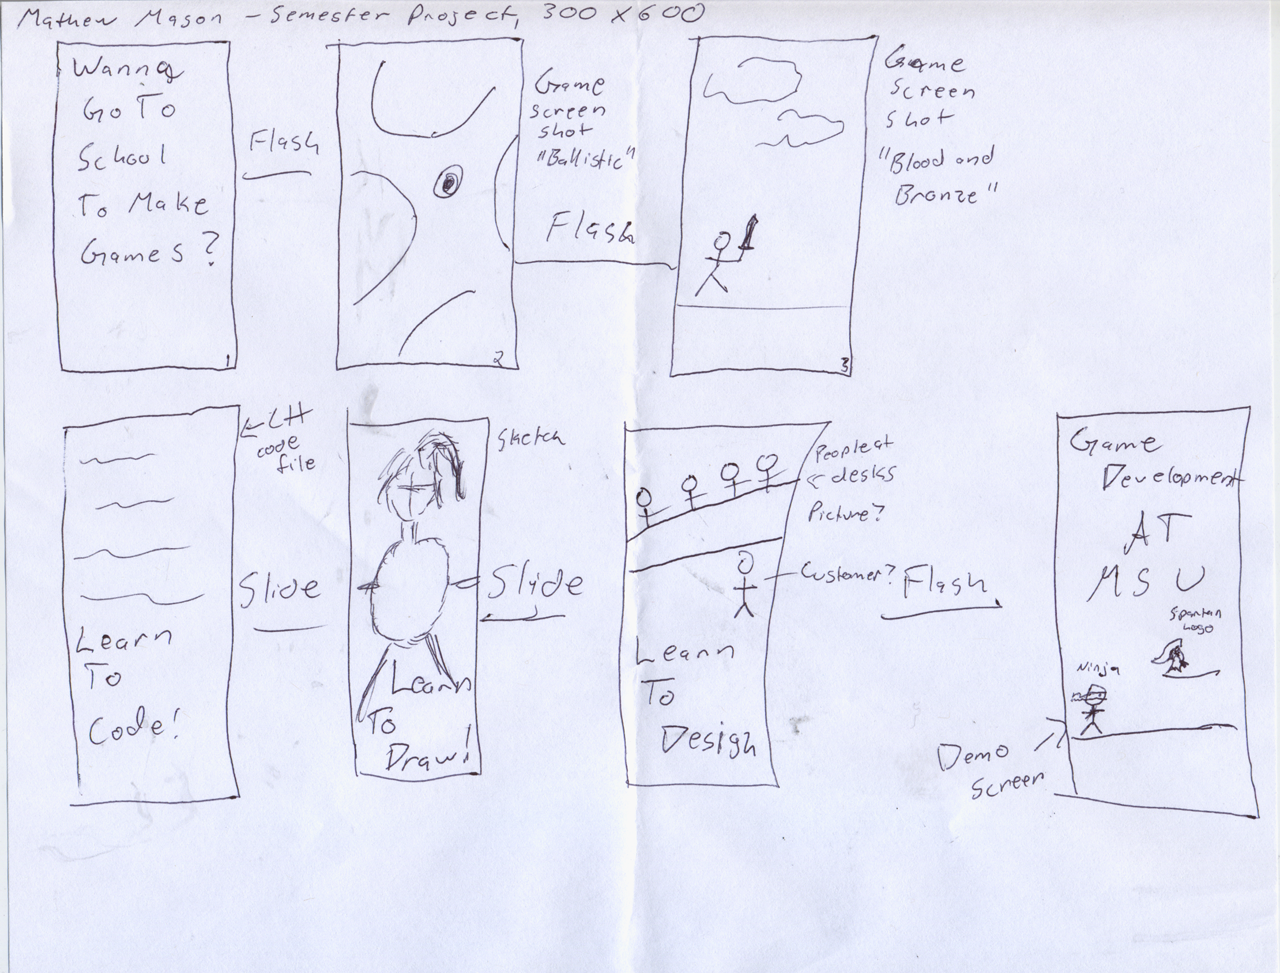 Mathew Mason - Semester Project, 300 x 600
Wanna
Go To
School
To Make
Games?
1
Flash
2
Game
screen
shot
"Ballistic"
Flash
3
Game
Screen
Shot
"Blood and
Bronze"
Learn
To
Code!
code
file
Slide
Sketch
Learn
To
Draw!
Slide
People at
desks
Picture?
Customer?
Learn
To
Design
Flash
Game
Development
AT
MSU
Spartan
Logo
Ninja
Demo
Screen